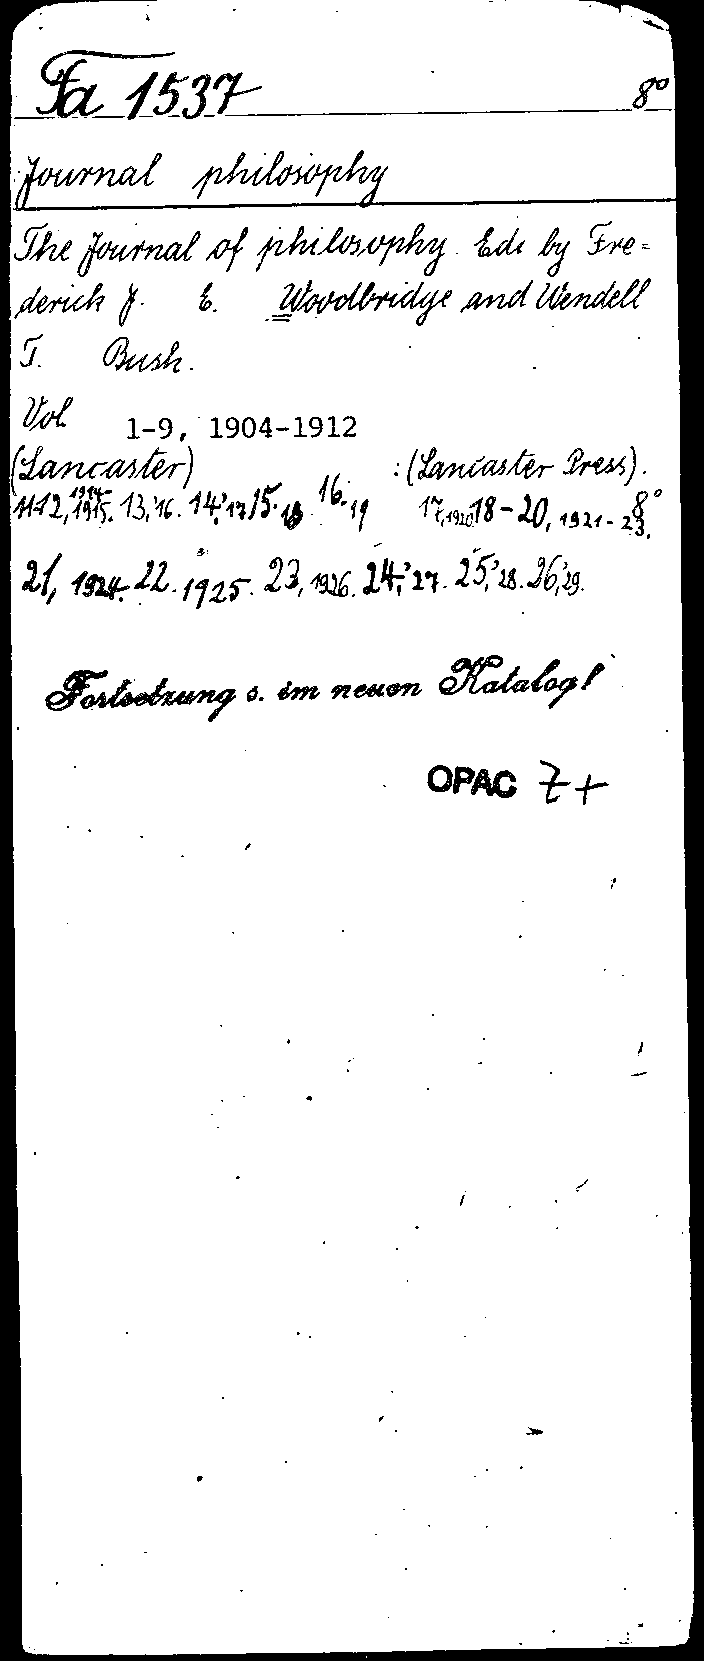 Fa 1537 8°
Journal philosophy
The Journal of philosophy. Edi by Fre=
derick J. E. Woodbridge and Wendell
T. Bush.
Vol 1-9, 1904-1912
(Lancaster) : (Lancaster Press).
8°
11-12, 1914-1915. 13,'16. 14,'17 15.18 16.19 17,1920 18-20, 1921-23.
21, 1924. 22. 1925. 23, 1926. 24,'27. 25,'28. 26,'29.
Fortsetzung s. im neuen Katalog!
OPAC Z+